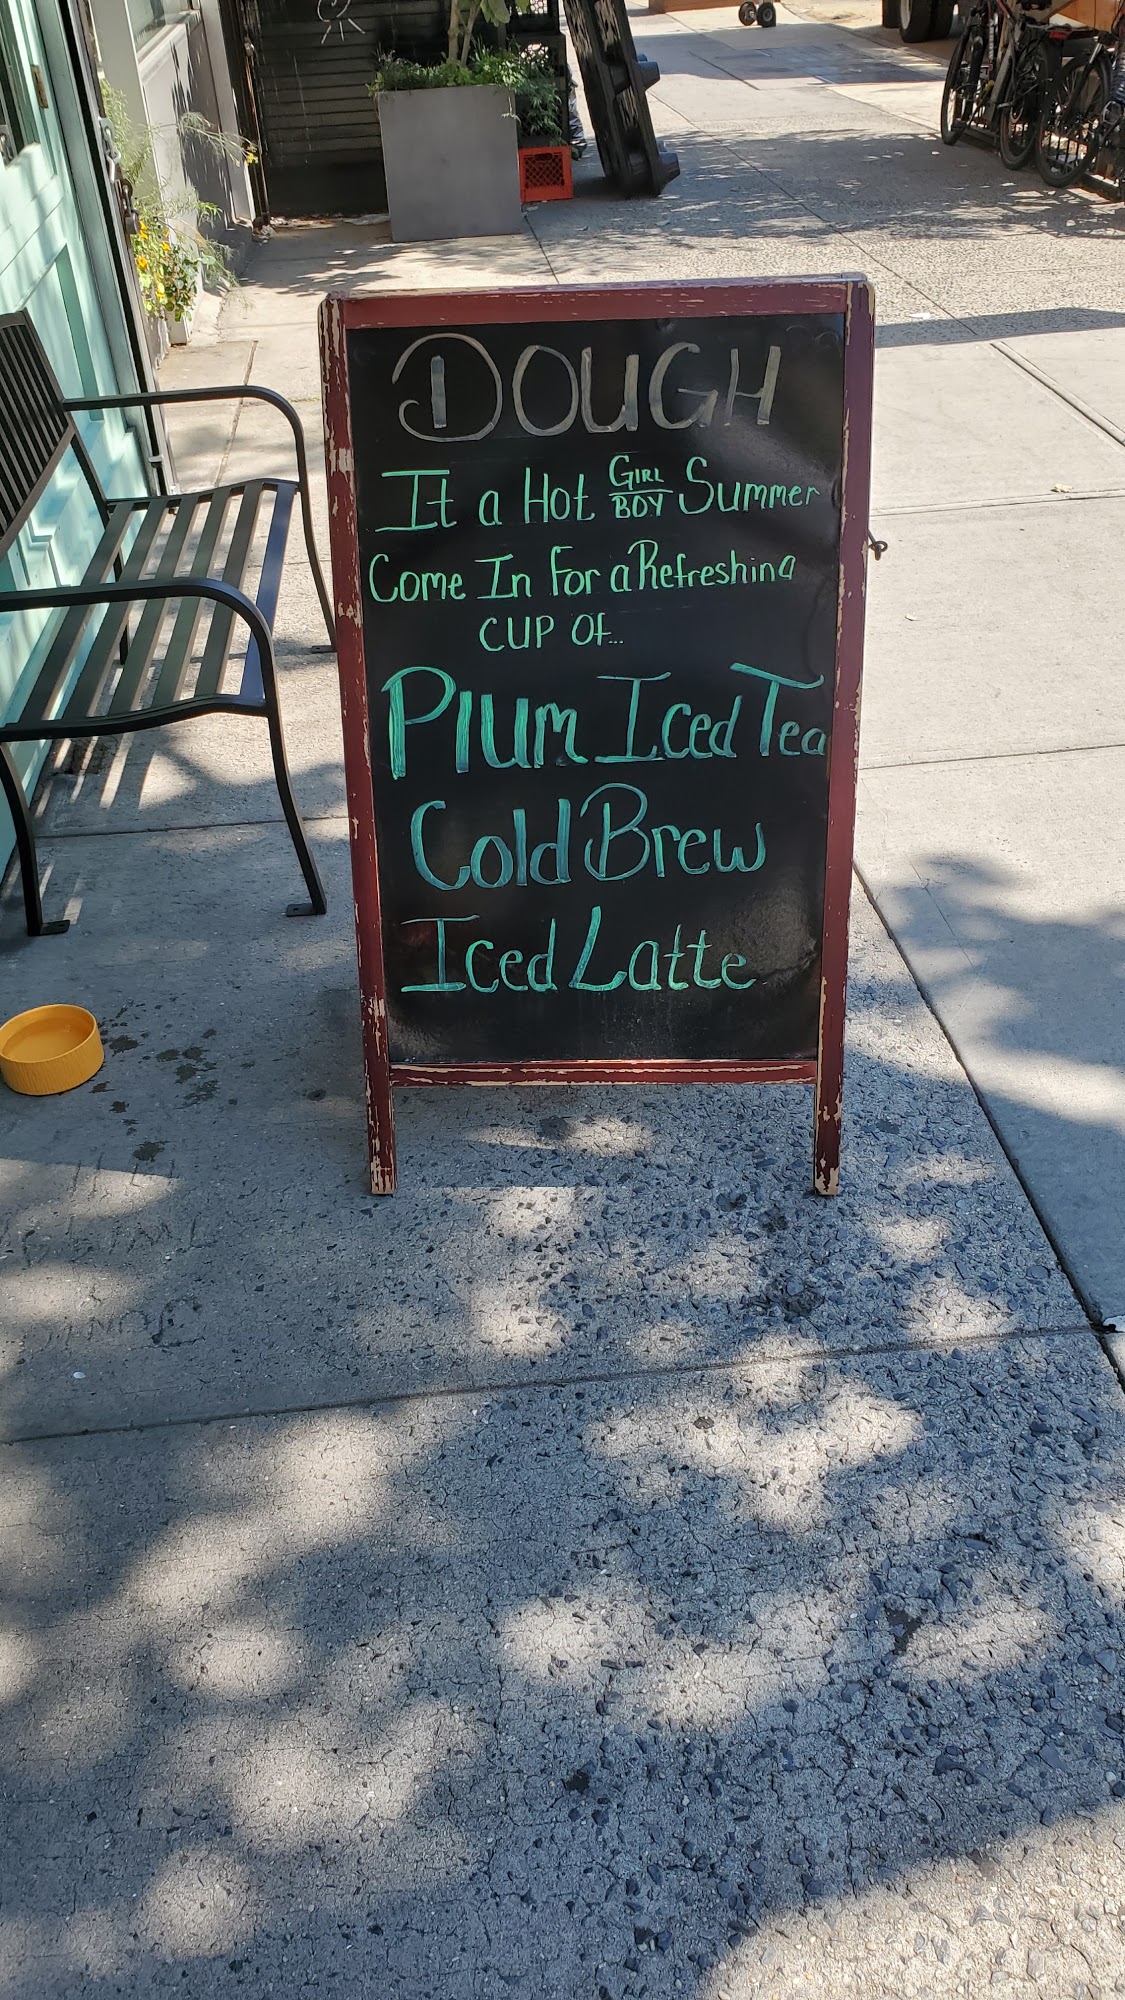 DOUGH
It a Hot GIRL BOY Summer
Come In For a Refreshing
CUP OF...
Plum Iced Tea
Cold Brew
Iced Latte